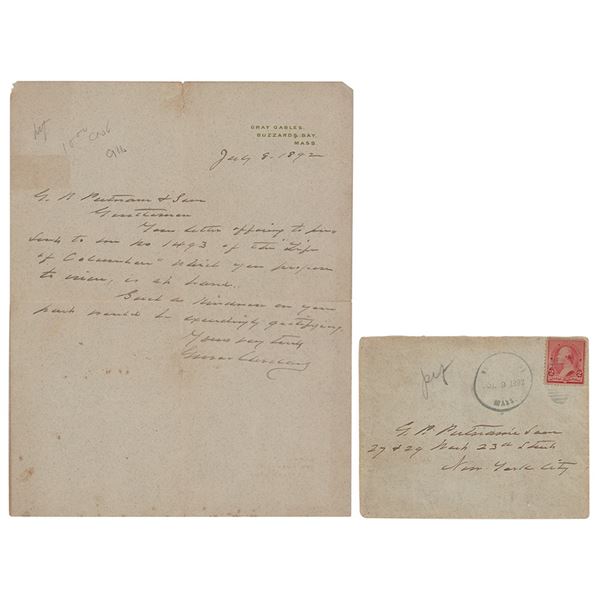 GRAY GABLES.
BUZZARDS BAY,
MASS.
July 8. 1892
G. P. Putnam & Son
Gentlemen
Your letter offering to pre
sent to me No 1493 of the "Life
of Columbus" which you propose
to issue, is at hand.
Such a kindness on your
part would be exceedingly gratifying
Yours very truly
Grover Cleveland
JUL 9 1892
MASS.
G. P. Putnam's Sons
27 & 29 West 23rd Street
New York City